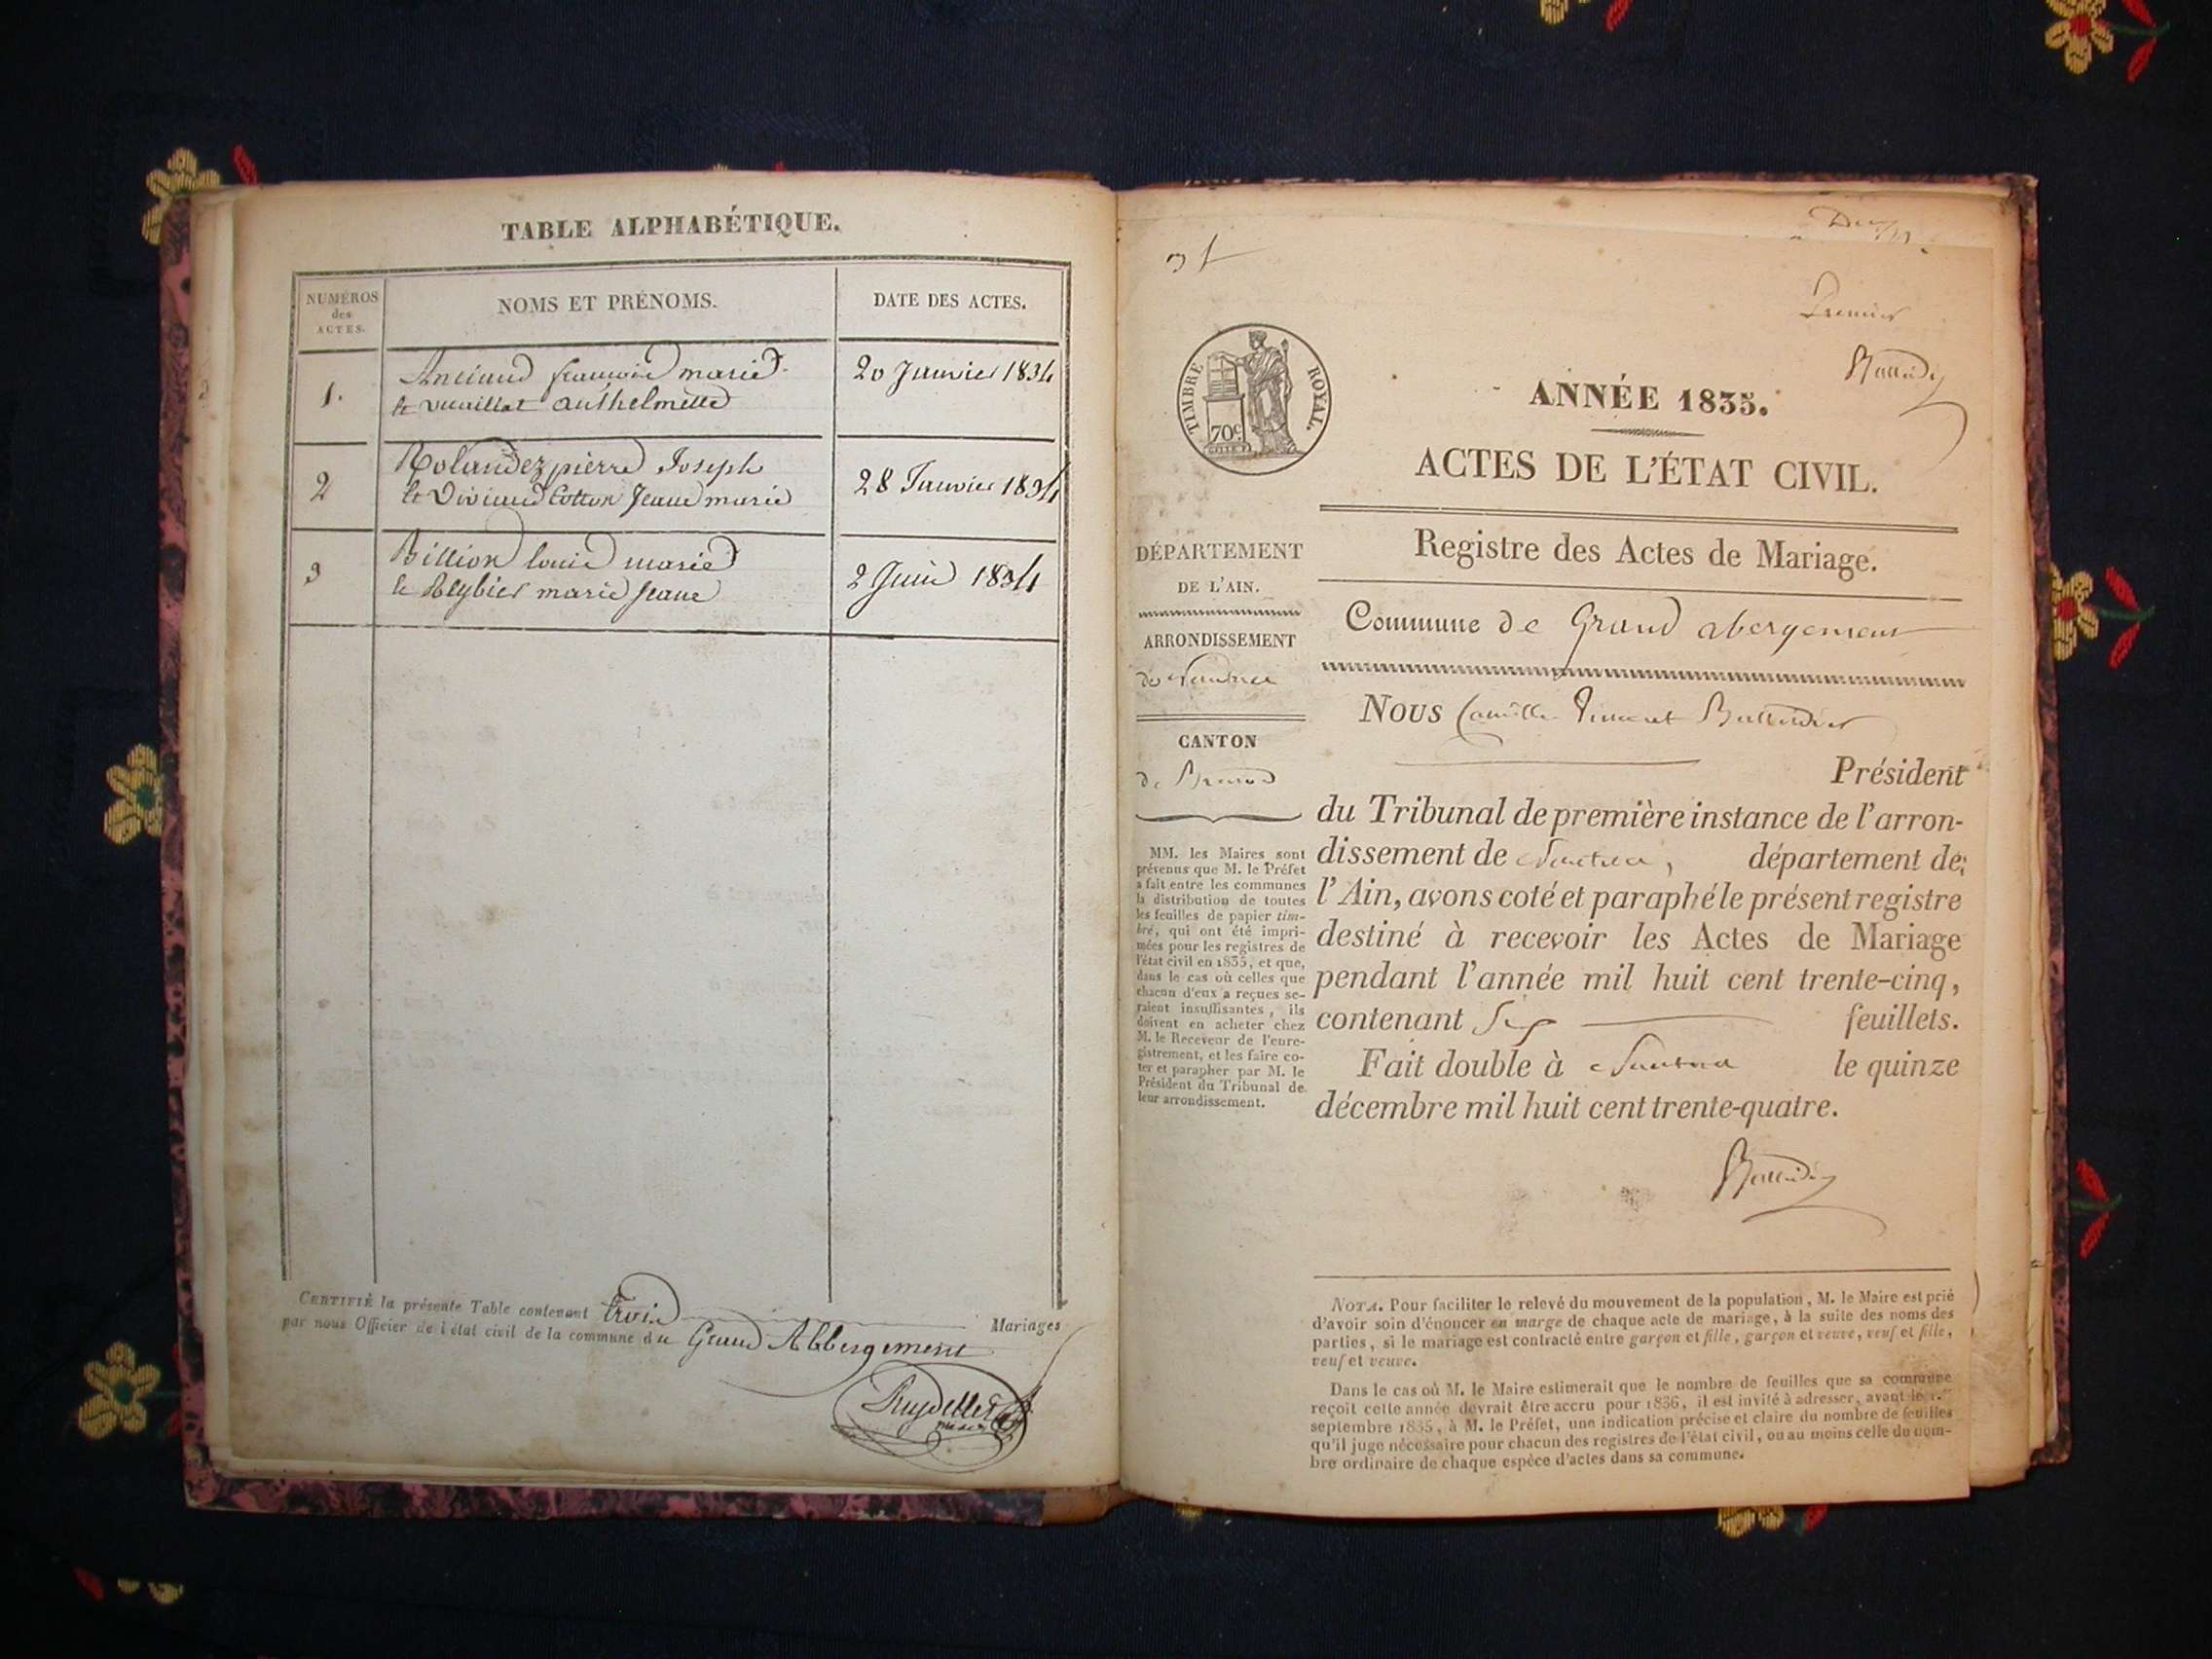 TABLE ALPHABÉTIQUE.
NUMÉROS
des
ACTES.
NOMS ET PRÉNOMS.
DATE DES ACTES.
1.
marie
20 Janvier 1834
et vuaillat anthelmette
2
Rolandez pierre Joseph
28 Janvier 1834
et Cotton Jeane marie
3
Billion louis marie
2 Juin 1834
et marie Jeane
CERTIFIÉ la présente Table contenant trois Mariages
par nous Officier de l'état civil de la commune du Grand Abbergement
3
Premier
TIMBRE ROYAL.
70c
ANNÉE 1835.
ACTES DE L'ÉTAT CIVIL.
Registre des Actes de Mariage.
DÉPARTEMENT
DE L'AIN.
ARRONDISSEMENT
de Nantua
CANTON
de Brenod
MM. les Maires sont
prévenus que M. le Préfet
a fait entre les communes
la distribution de toutes
les feuilles de papier tim-
bré, qui ont été impri-
mées pour les registres de
l'état civil en 1835, et que,
dans le cas où celles que
chacun d'eux a reçues se-
raient insuffisantes, ils
doivent en acheter chez
M. le Receveur de l'enre-
gistrement, et les faire co-
ter et parapher par M. le
Président du Tribunal de
leur arrondissement.
Commune de Grand abergement
Nous Camille Vincent
Président
du Tribunal de première instance de l'arron-
dissement de Nantua, département de
l'Ain, avons coté et paraphé le présent registre
destiné à recevoir les Actes de Mariage
pendant l'année mil huit cent trente-cinq,
contenant Six feuillets.
Fait double à Nantua le quinze
décembre mil huit cent trente-quatre.
NOTA. Pour faciliter le relevé du mouvement de la population, M. le Maire est prié
d'avoir soin d'énoncer en marge de chaque acte de mariage, à la suite des noms des
parties, si le mariage est contracté entre garçon et fille, garçon et veuve, veuf et fille,
veuf et veuve.
Dans le cas où M. le Maire estimerait que le nombre de feuilles que sa commune
reçoit cette année devrait être accru pour 1836, il est invité à adresser, avant le 1.er
septembre 1835, à M. le Préfet, une indication précise et claire du nombre de feuilles
qu'il juge nécessaire pour chacun des registres de l'état civil, ou au moins celle du nom-
bre ordinaire de chaque espèce d'actes dans sa commune.